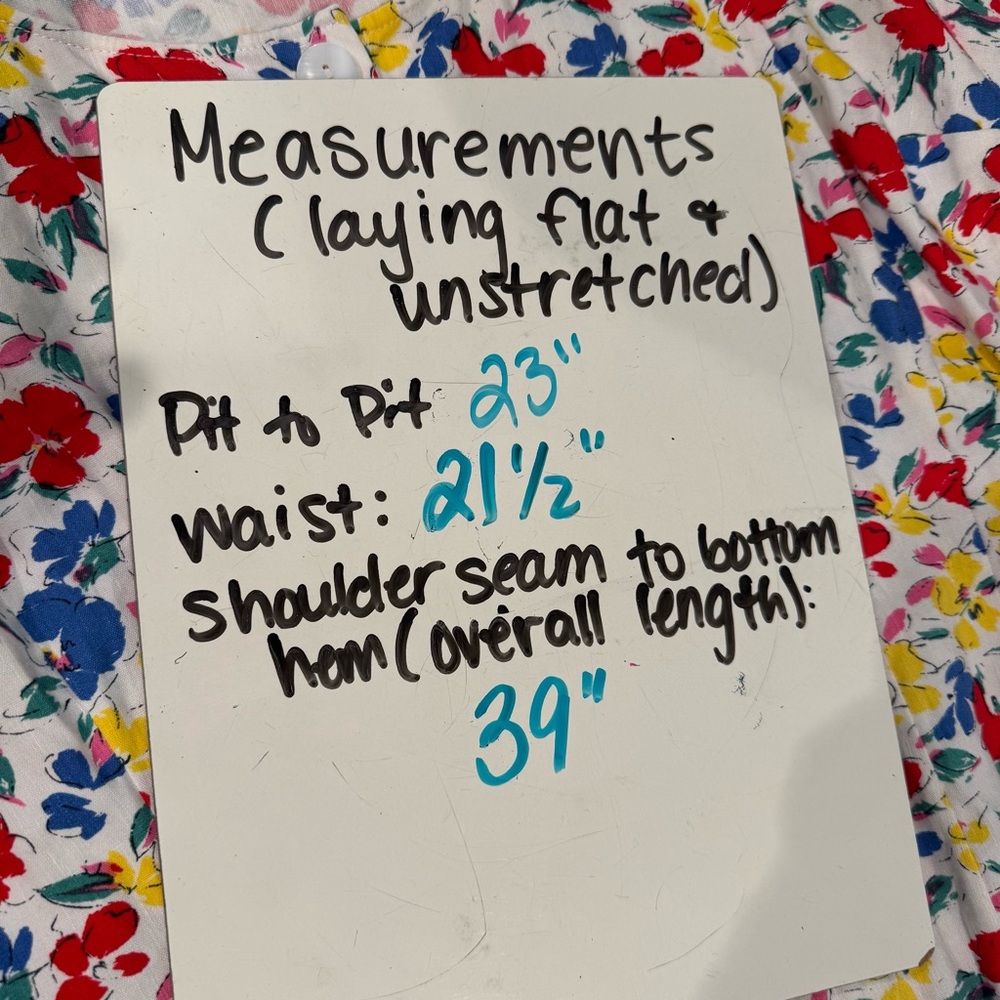 Measurements
(laying flat &
unstretched)
Pit to Pit 23"
waist: 21 1/2"
shoulder seam to bottom
hem (overall length):
39"